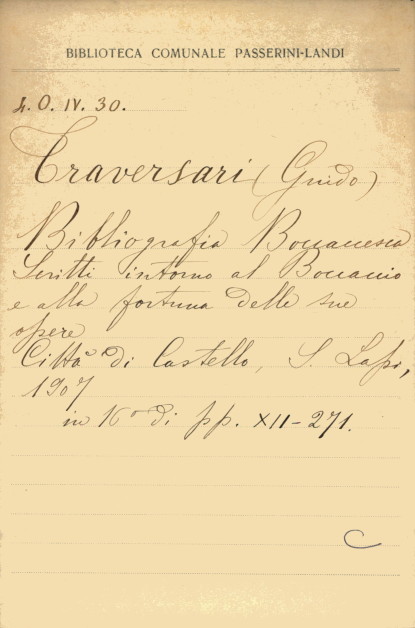 BIBLIOTECA COMUNALE PASSERINI-LANDI
4. O. IV. 30.
Traversari (Guido)
Bibliografia Boccaccesca
Scritti intorno al Boccaccio
e alla fortuna delle sue
opere
Città di Castello, S. Lapi,
1907
in 16° di pp. XII-271.
C